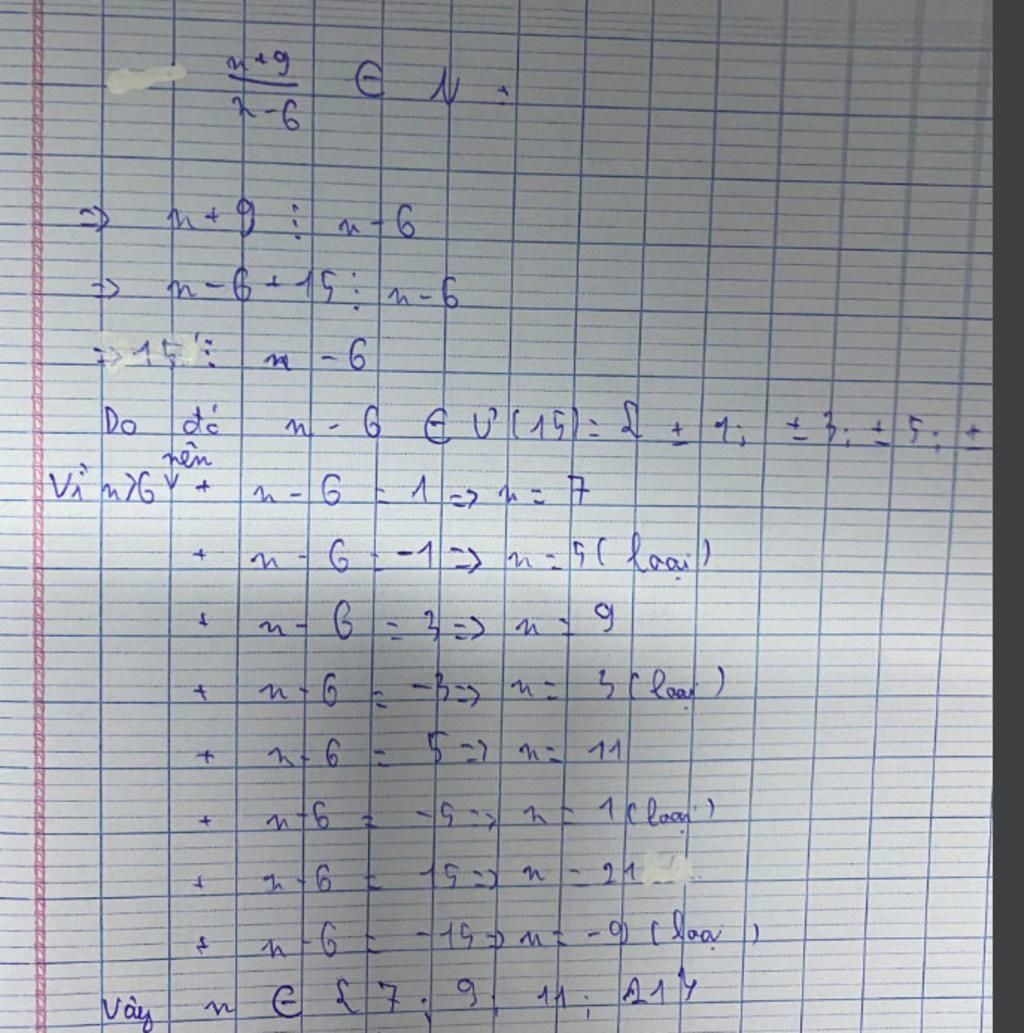 n+9
n-6 ∈ N.
=> n+9 ⋮ n-6
=> n-6+15 ⋮ n-6
=> 15 ⋮ n-6
Do đó n-6 ∈ Ư(15) = { ±1; ±3; ±5; ±
nên
Vì n>6 + n-6 = 1 => n = 7
+ n-6 = -1 => n = 5 (loại)
+ n-6 = 3 => n = 9
+ n-6 = -3 => n = 3 (loại)
+ n-6 = 5 => n = 11
+ n-6 = -5 => n = 1 (loại)
+ n-6 = 15 => n = 21
+ n-6 = -15 => n = -9 (loại)
Vậy n ∈ { 7; 9; 11; 21}